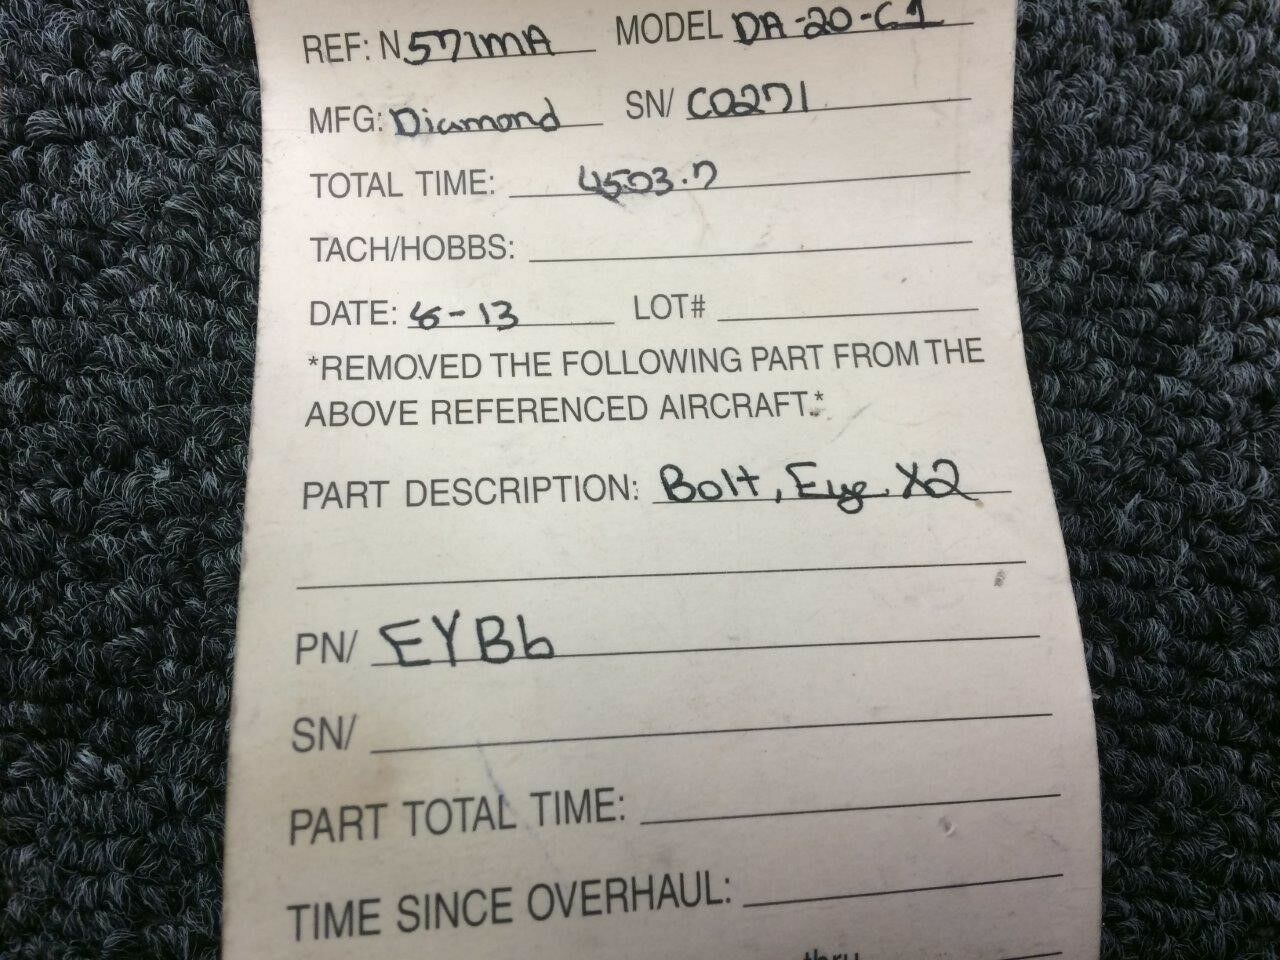 REF: N571MA MODEL DA-20-C1
MFG: Diamond SN/ C0271
TOTAL TIME: 4503.7
TACH/HOBBS:
DATE: 6-13 LOT#
*REMOVED THE FOLLOWING PART FROM THE
ABOVE REFERENCED AIRCRAFT.*
PART DESCRIPTION: Bolt, Eye X2
PN/ EYB6
SN/
PART TOTAL TIME:
TIME SINCE OVERHAUL:
thru